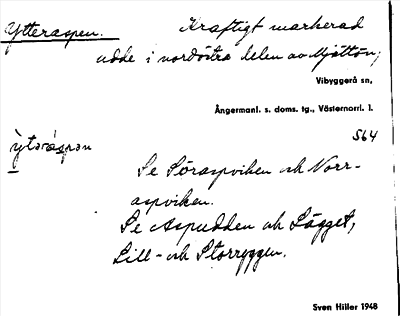 Ytteraspen. Kraftigt markerad
udde i nordöstra delen av Mjältön;
Vibyggerå sn,
Ångermanl. s. doms. tg., Västernorrl. l.
564
Se Söraspviken och Norr-
aspviken.
Se Aspudden och Lägget,
Lill- och Storryggen.
Sven Hiller 1948